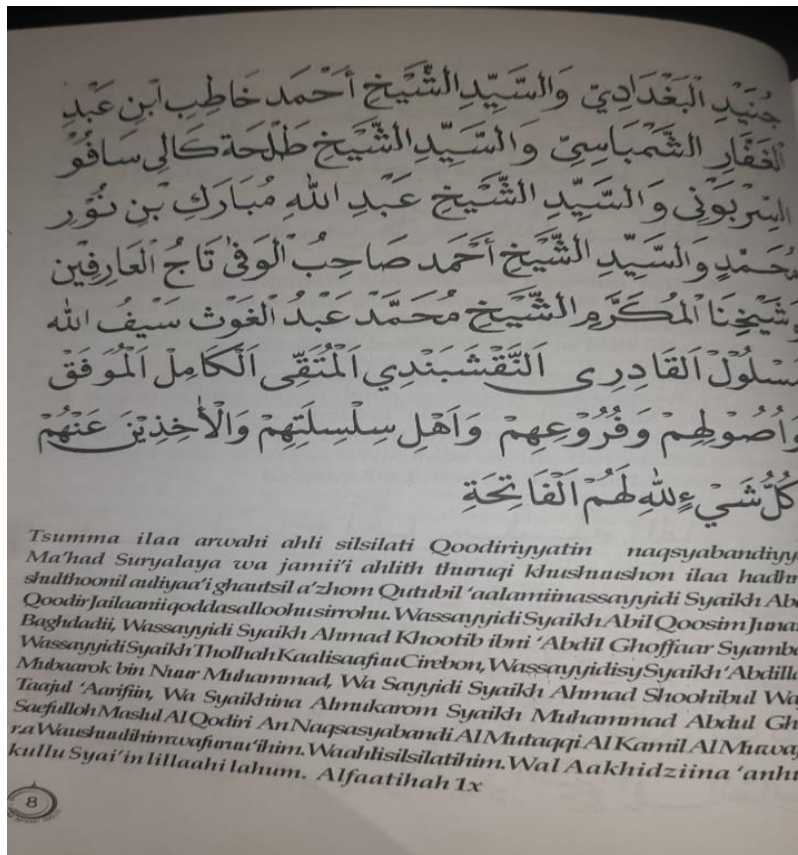 جُنَيْدِ الْبَغْدَادِيّ وَالسَّيِّدِ الشَّيْخِ أَحْمَد خَاطِبِ ابْنِ عَبْدِ
الْغَفَّارِ الشَّمْبَاسِيّ وَالسَّيِّدِ الشَّيْخِ طَلْحَة كَالِى سَافُوْ
السِرْبَوْنِى وَالسَّيِّدِ الشَّيْخِ عَبْدِ اللهِ مُبَارَكِ بْنِ نُوْرِ
مُحَمَّدٍ وَالسَّيِّدِ الشَّيْخِ أَحْمَد صَاحِبُ الْوَفَى تَاجُ الْعَارِفِيْن
وَشَيْخِنَا الْمُكَرَّمِ الشَّيْخِ مُحَمَّدْ عَبْدُ الْغَوْث سَيْفُ الله
مَسْلُوْل الْقَادِرِى النَّقْشَبَنْدِي الْمُتَّقِى الْكَامِلْ الْمُوَفَّقْ
وَاُصُوْلِهِمْ وَفُرُوْعِهِمْ وَاَهْلِ سِلْسِلَتِهِمْ وَالْأٰخِذِيْنَ عَنْهُمْ
كُلُّ شَيْءٍ لِلّٰهِ لَهُمُ الْفَاتِحَةِ
Tsumma ilaa arwahi ahli silsilati Qoodiriyyatin naqsyabandiyy
Ma'had Suryalaya wa jamii'i ahlith thuruqi khushuushon ilaa hadhr
shulthoonil auliyaa'i ghautsil a'zhom Qutubil 'aalamiinassayyidi Syaikh Abd
Qoodir Jailaanii qoddasalloohu sirrohu. Wassayyidi Syaikh Abil Qoosim Juna
Baghdadii, Wassayyidi Syaikh Ahmad Khootib ibni 'Abdil Ghoffaar Syamba
Wassayyidi Syaikh Tholhah Kaalisaafuu Cirebon, Wassayyidisy Syaikh 'Abdilla
Mubaarok bin Nuur Muhammad, Wa Sayyidi Syaikh Ahmad Shoohibul Wa
Taajul 'Aarifiin, Wa Syaikhina Almukarom Syaikh Muhammad Abdul Gh
Saefulloh Maslul Al Qodiri An Naqsasyabandi Al Mutaqqi Al Kamil Al Muwaf
r.a Wa ushuulihim wa furuu'ihim. Wa ahli silsilatihim. Wal Aakhidziina 'anhu
kullu Syai'in lillaahi lahum. Alfaatihah 1x
8